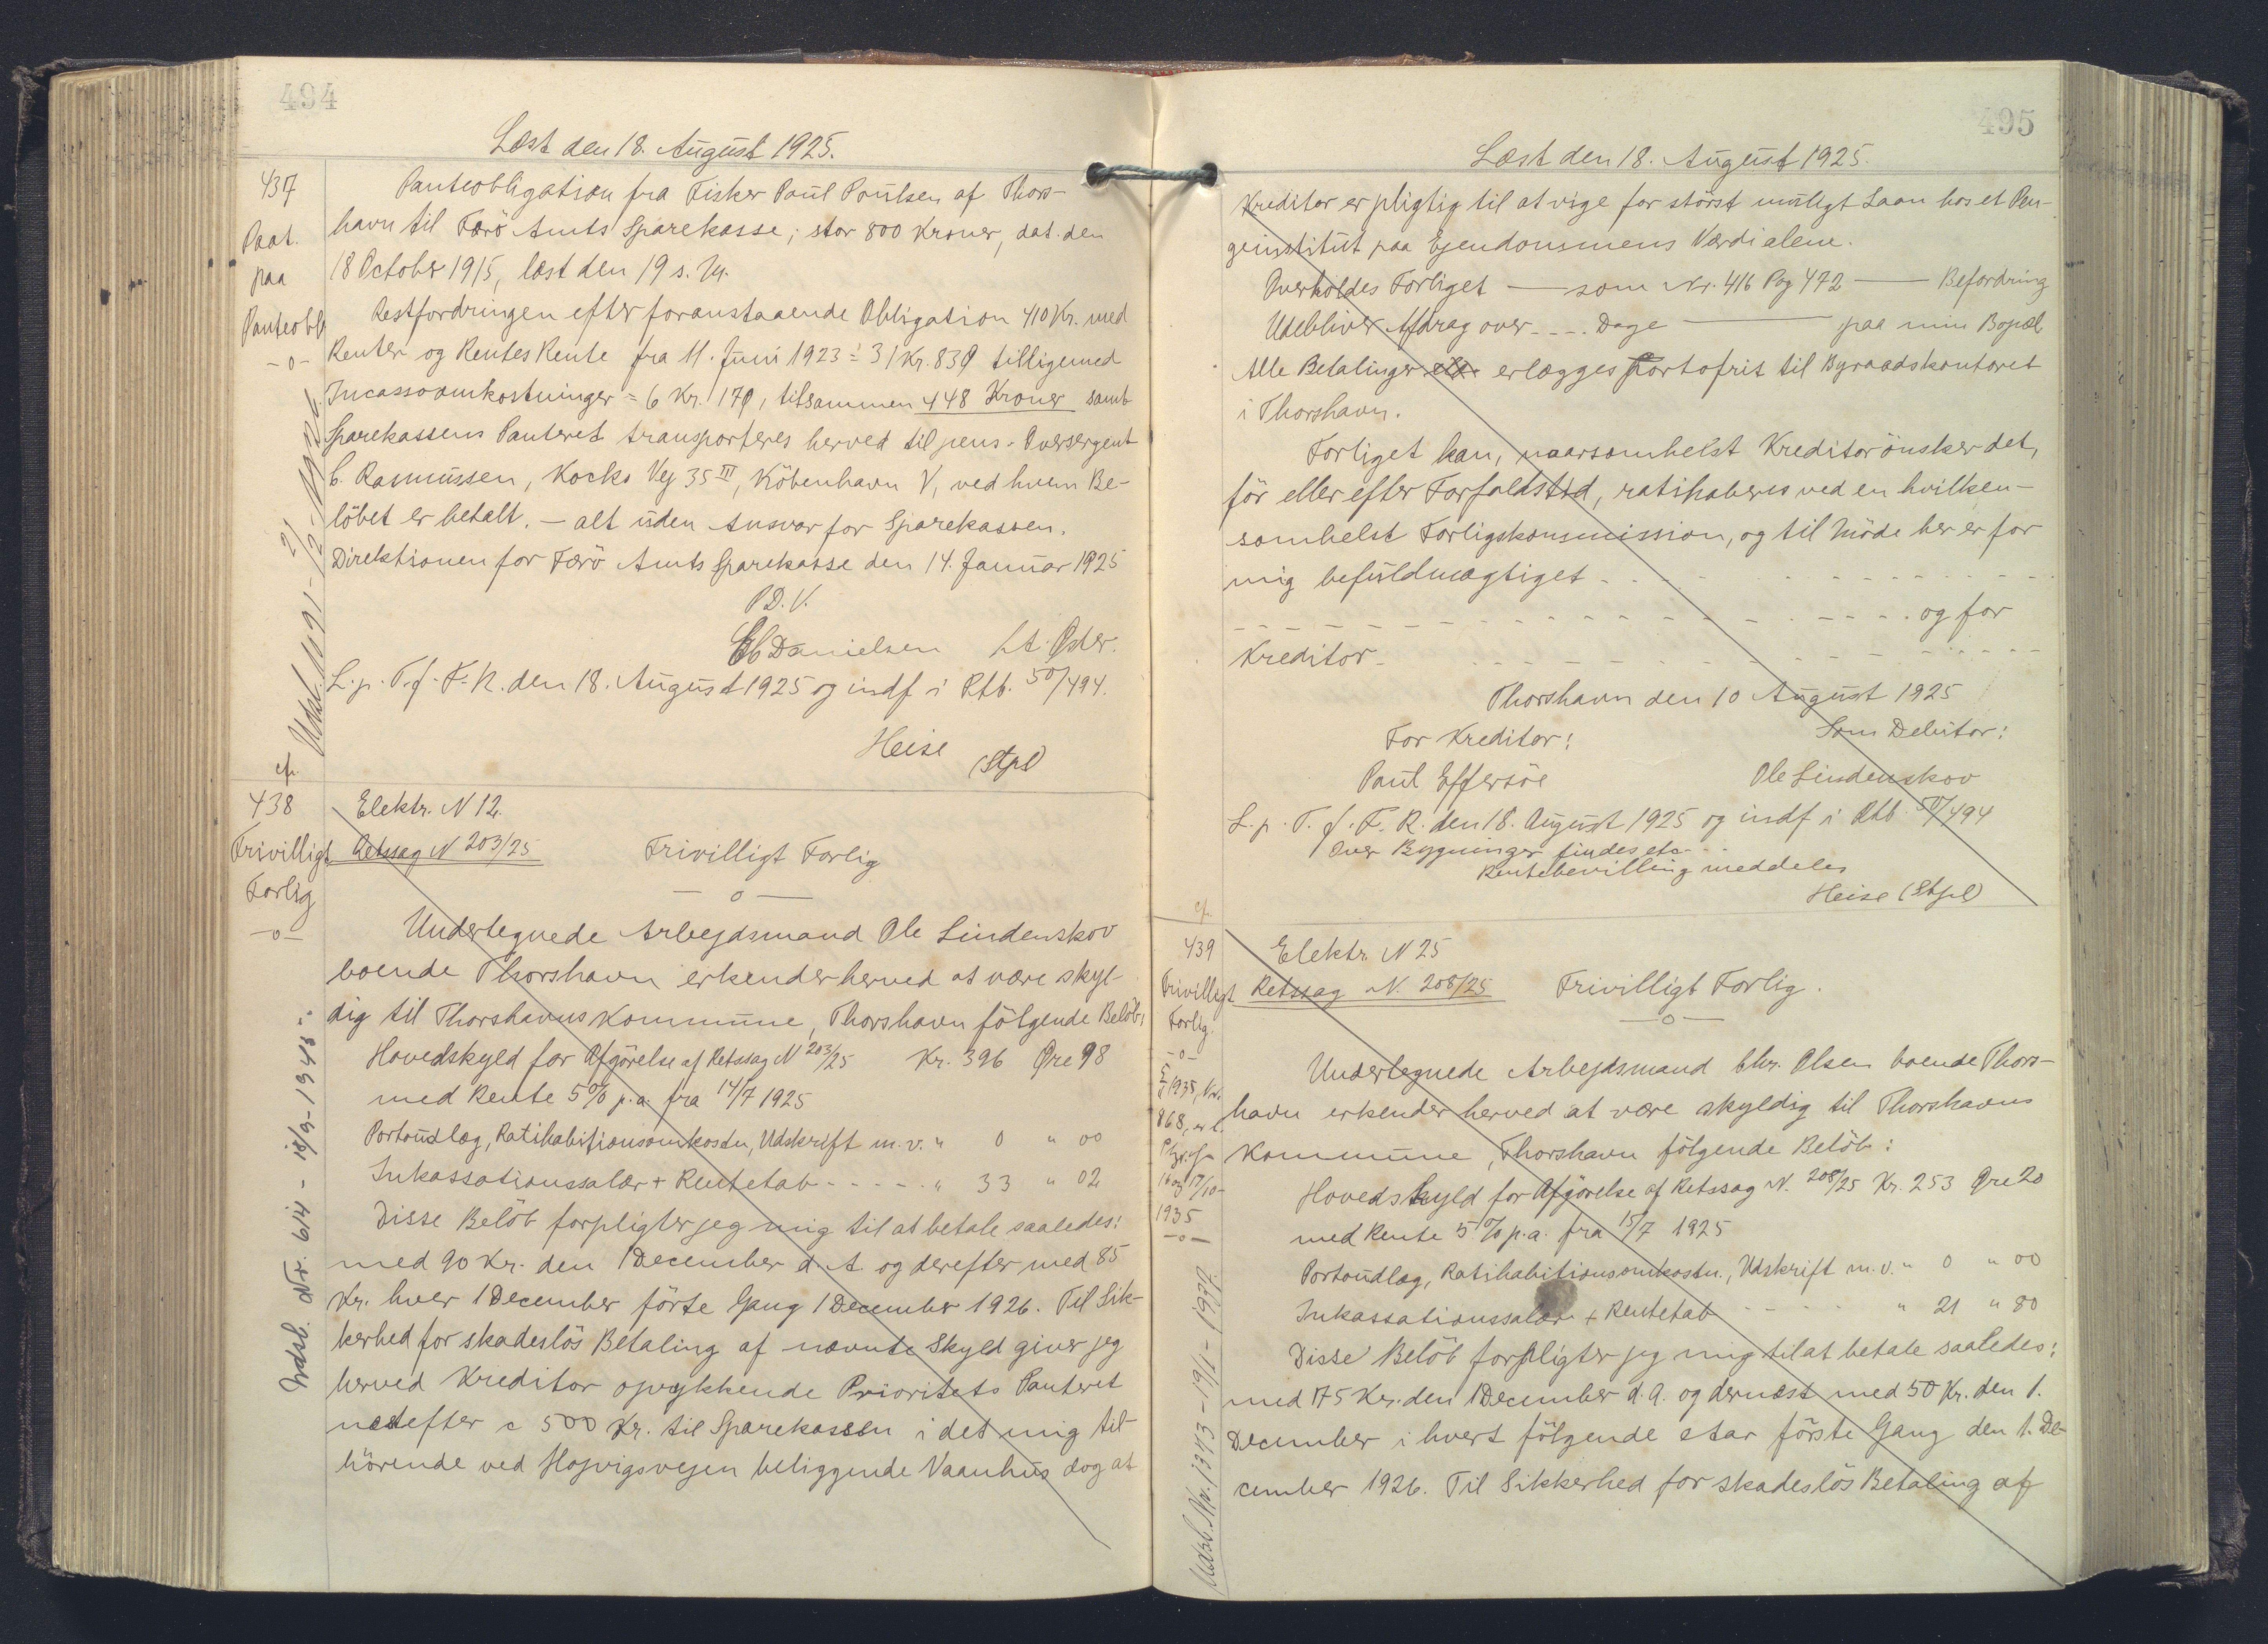 494
Læst den 18. August 1925.
437
Paat.
paa
Panteobl
-o-
Panteobligation fra Fisker Poul Poulsen af Thors-
havn til Færö Amts Sparekasse; stor 800 Kroner, dat. den
18 October 1915, læst den 19 s. M.
Restfordringen efter foranstaaende Obligation 410 Kr. med
Renter og Rentes Rente fra 11. Juni 1923 = 31 Kr. 83 Ø tilligemed
Incassoomkostninger = 6 Kr. 17 Ø, tilsammen 448 Kroner samt
Sparekassens Panteret transporteres herved til pens. Oversergent
C. Rasmussen, Kocks Vej 35 III, Köbenhavn V, ved hvem Be-
löbet er betalt. - alt uden Ansvar for Sparekassen.
Direktionen for Færö Amts Sparekasse den 14. Januar 1925
P. D. V.
Danielsen
L. p. T. f. F. R. den 18. August 1925 og indf i Rtb. 50/494.
Heise (Stpl)
cfr.
438
Frivilligt
Forlig
-o-
Udsl. Nr. 614 - 18/9 - 1945.
Elektr. N 12.
Retssag N 203/25 Frivilligt Forlig
-o-
Undertegnede Arbejdsmand Ole Lindenskov
boende Thorshavn erkender herved at være skyl-
dig til Thorshavns Kommune, Thorshavn fölgende Belöb:
Hovedskyld for Afgörelse af Retssag N 203/25 Kr. 396 Øre 98
med Rente 5 % p.a. fra 14/7 1925
Portoudlæg, Ratihabitionsomkostn, Udskrift m.v. " 0 " 00
Inkassationssalær + Rentetab - - - - - " 33 " 02
Disse Belöb forpligter jeg mig til at betale saaledes:
med 90 Kr. den 1 December d. A. og derefter med 85
Kr. hver 1 December förte Gang 1 December 1926. Til Sik-
kerhed for skadeslös Betaling af nævnte Skyld giver jeg
herved Kreditor oprykkende Prioritets Panteret
næstefter c 500 Kr. til Sparekassen i det mig til-
hörende ved Hojvigsvejen beliggende Vaanhus dog at
495
Læst den 18. August 1925.
Kreditor er pligtig til at vige for störst muligt Laan hos et Pen-
geinstitut paa Ejendommens Værdi alene.
Overholdes Forliget — som Nr. 416 Pag 472 — Befordring
Udebliver Afdrag over - - - - Dage — paa min Bopæl
Alle Betalinger erlægges portofrit til Byraadskontoret
i Thorshavn.
Forliget kan, naarsomhelst Kreditor önsker det,
för eller efter Forfaldstid, ratihaberes ved en hvilken-
somhelst Forligskommission, og til Möde her er for
mig befuldmægtiget - - - - - - - - - -
- - - - - - - - - - - - - - - og for
Kreditor - - - - - - - - - - - - - -
Thorshavn den 10 August 1925
For Kreditor: Som Debitor:
Poul Effersöe Ole Lindenskov
L. p. T. f. F. R. den 18. August 1925 og indf i Rtb. 50/494
Over Bygninger findes etc - -
Rentebevilling meddeles
Heise (Stpl)
cfr.
439
Frivilligt
Forlig.
-o-
1935, Nr.
868,
16 og 17/10-
1935
-o-
Udsl. Nr. 1343 - 19/1 - 1937.
Elektr. N 25
Retssag N. 208/25 Frivilligt Forlig.
-o-
Undertegnede Arbejdsmand Chr. Olsen boende Thors-
havn erkender herved at være skyldig til Thorshavns
Kommune, Thorshavn fölgende Belöb:
Hovedskyld for Afgörelse af Retssag N. 208/25 Kr. 253 Øre 20
med Rente 5 % p.a. fra 15/7 1925
Portoudlæg, Ratihabitionsomkostn., Udskrift m.v. " 0 " 00
Inkassationssalær + Rentetab - - - - " 21 " 80
Disse Belöb forpligter jeg mig til at betale saaledes:
med 175 Kr. den 1 December d. A. og dernæst med 50 Kr. den 1.
December i hvert fölgende Aar förste Gang den 1. De-
cember 1926. Til Sikkerhed for skadeslös Betaling af